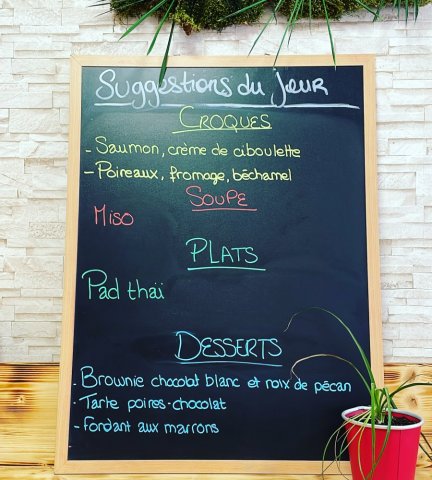 Suggestions du jour
CROQUES
- Saumon, crème de ciboulette
- Poireaux, fromage, béchamel
SOUPE
Miso
PLATS
Pad thaï
DESSERTS
- Brownie chocolat blanc et noix de pécan
- Tarte poires-chocolat
- Fondant aux marrons